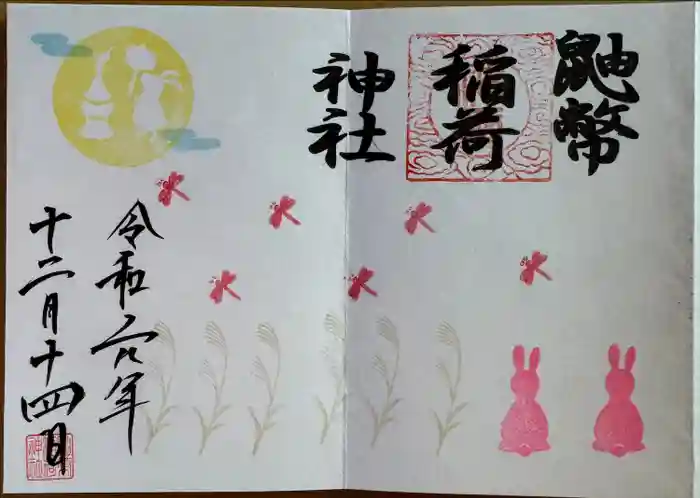 鼬幣
稲荷
神社
令和六年
十二月十四日